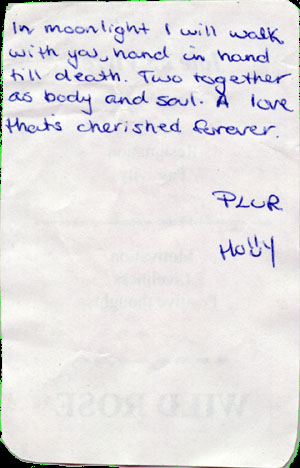 In moonlight I will walk
with you, hand in hand
till death. Two together
as body and soul. A love
that's cherished forever.
PLUR
Holly
WILD ROSE